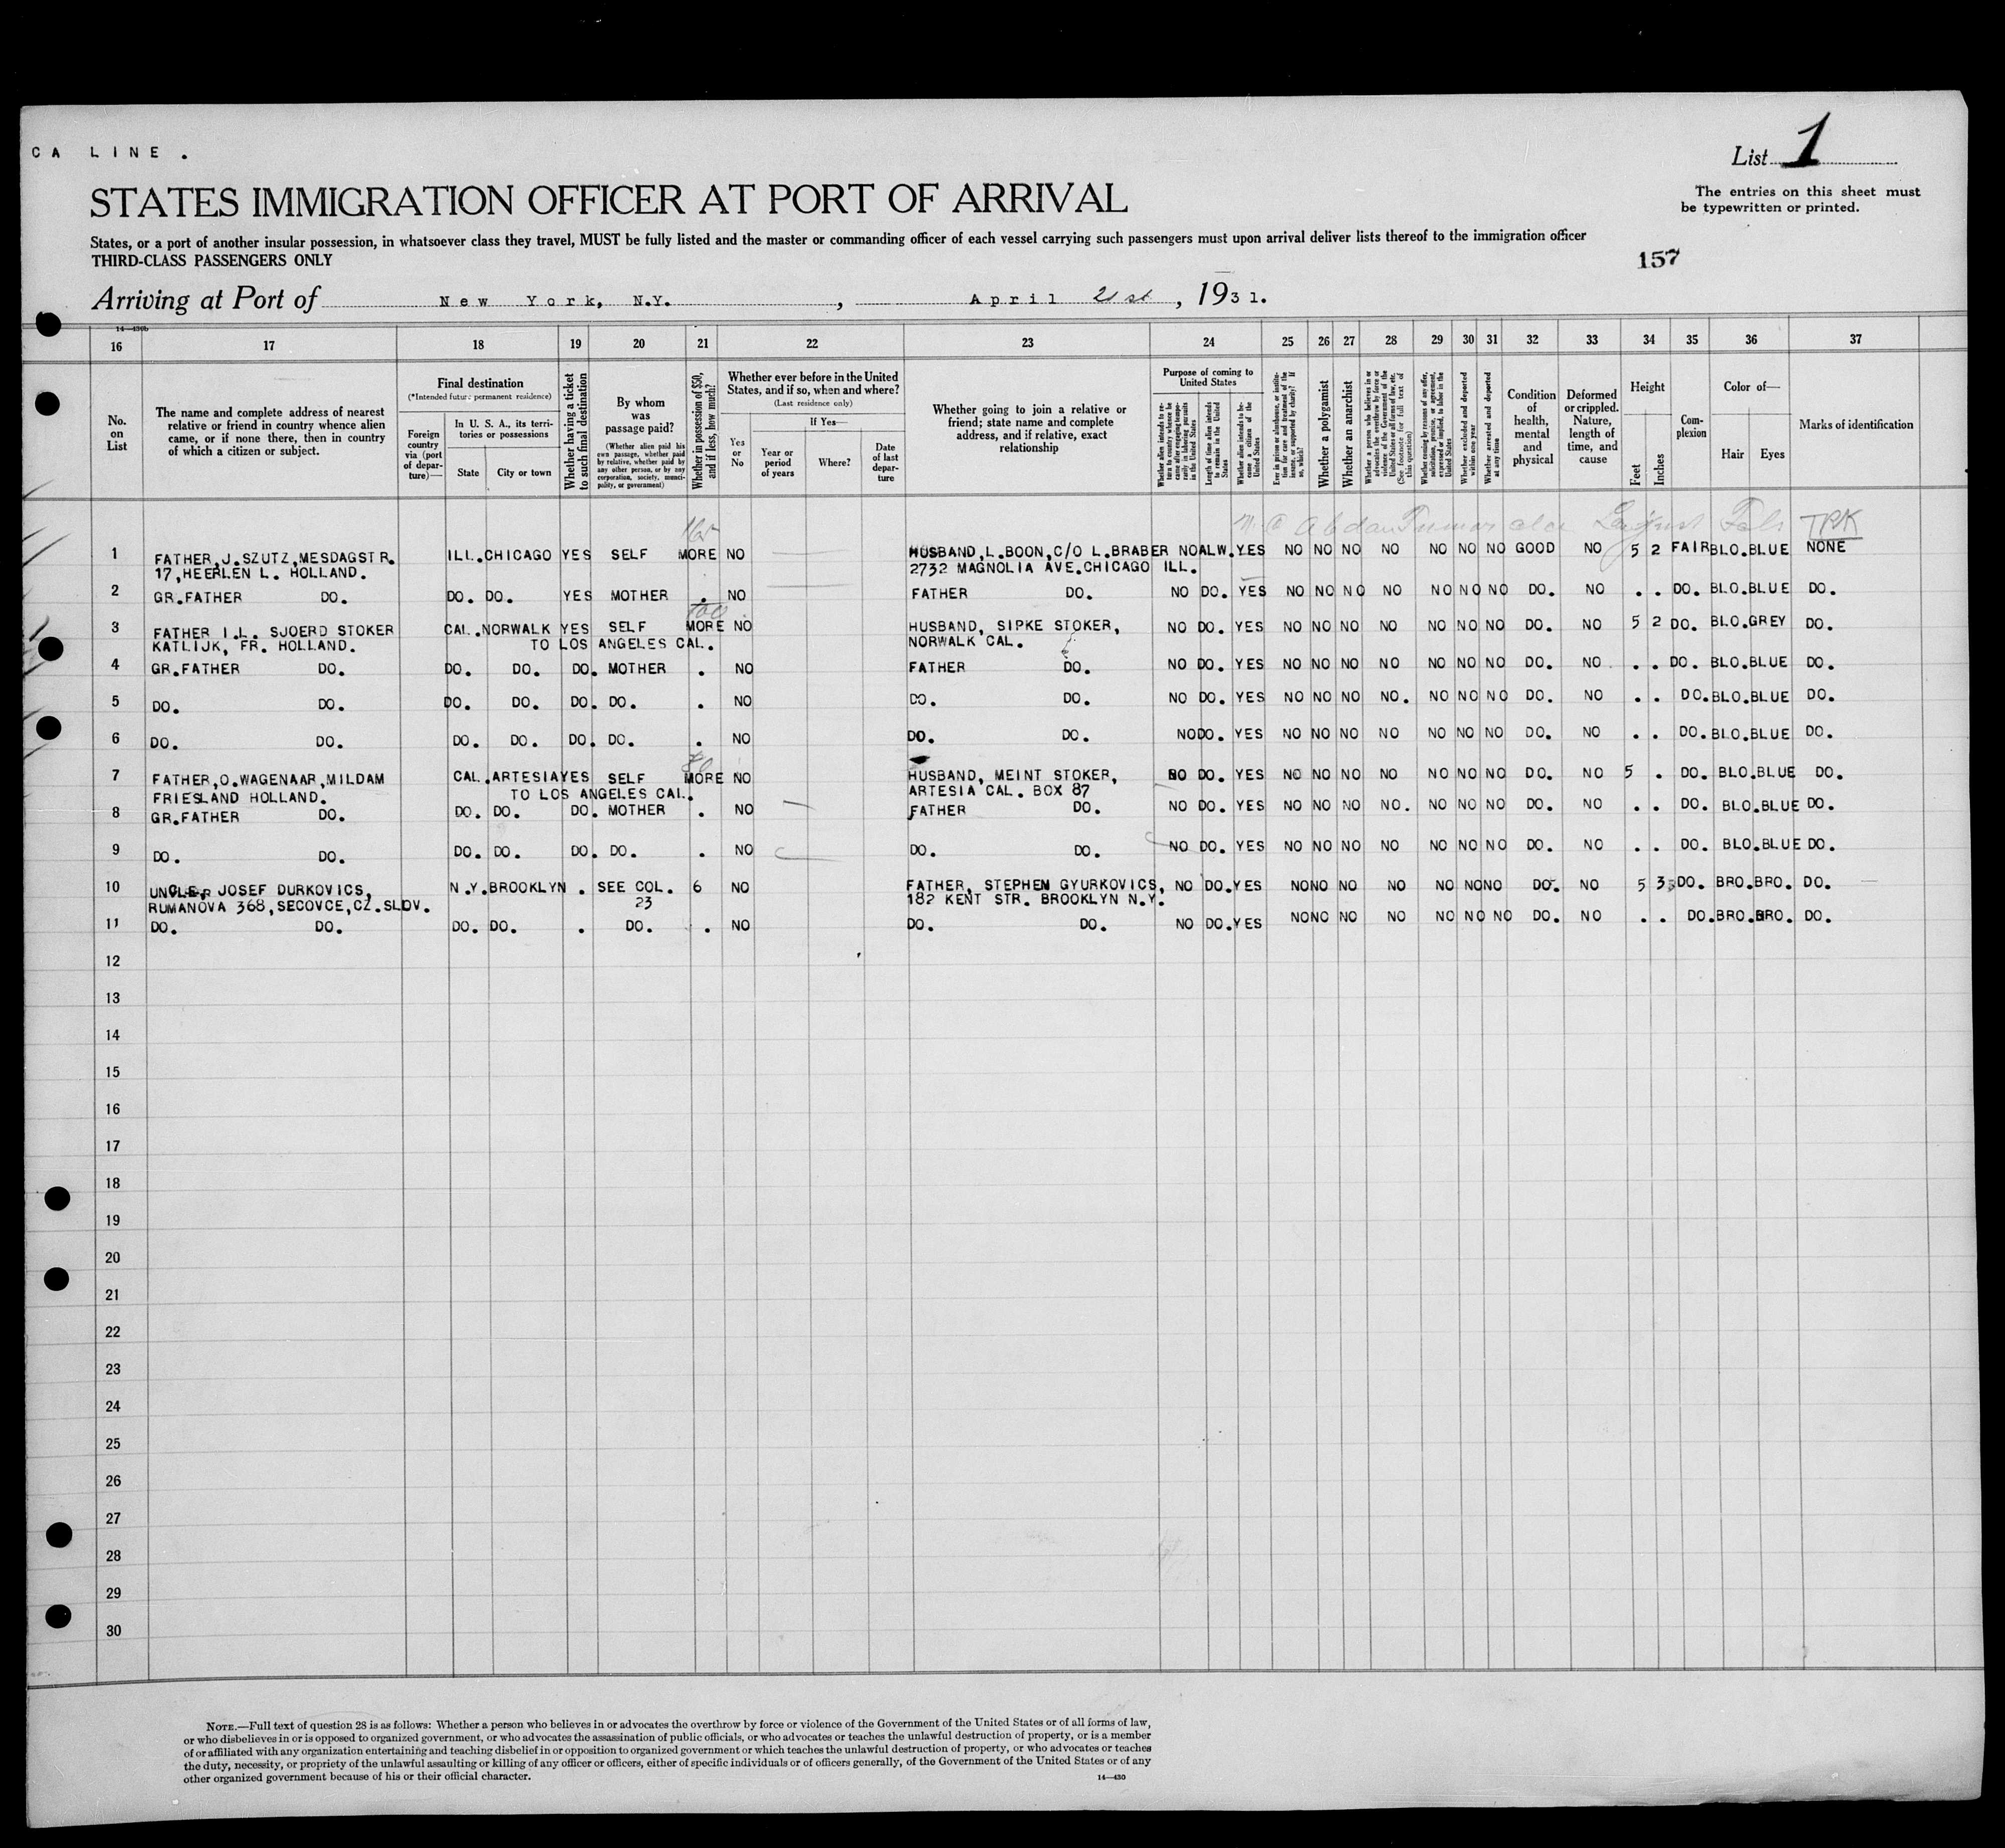 CA LINE .
List 1
STATES IMMIGRATION OFFICER AT PORT OF ARRIVAL
The entries on this sheet must
be typewritten or printed.
States, or a port of another insular possession, in whatsoever class they travel, MUST be fully listed and the master or commanding officer of each vessel carrying such passengers must upon arrival deliver lists thereof to the immigration officer
THIRD-CLASS PASSENGERS ONLY
157
Arriving at Port of New York, N.Y. , April 21st , 1931.
14—430b
16 17 18 19 20 21 22 23 24 25 26 27 28 29 30 31 32 33 34 35 36 37
No.
on
List
The name and complete address of nearest
relative or friend in country whence alien
came, or if none there, then in country
of which a citizen or subject.
Final destination
(*Intended future permanent residence)
Foreign
country
via (port
of depar-
ture)—
In U. S. A., its terri-
tories or possessions
State
City or town
Whether having a ticket
to such final destination
By whom
was
passage paid?
(Whether alien paid his
own passage, whether paid
by relative, whether paid by
any other person, or by any
corporation, society, munici-
pality, or government)
Whether in possession of $50,
and if less, how much?
Whether ever before in the United
States, and if so, when and where?
(Last residence only)
Yes
or
No
If Yes—
Year or
period
of years
Where?
Date
of last
depar-
ture
Whether going to join a relative or
friend; state name and complete
address, and if relative, exact
relationship
Purpose of coming to
United States
Whether alien intends to re-
turn to country whence he
came after engaging tempo-
rarily in laboring pursuits
in the United States
Length of time alien intends
to remain in the United
States
Whether alien intends to be-
come a citizen of the
United States
Ever in prison or almshouse, or institu-
tion for care and treatment of the
insane, or supported by charity? If
so, which?
Whether a polygamist
Whether an anarchist
Whether a person who believes in or
advocates the overthrow by force or
violence of the Government of the
United States or all forms of law, etc.
(See footnote for full text of
this question)
Whether coming by reasons of any offer,
solicitation, promise, or agreement,
expressed or implied, to labor in the
United States
Whether excluded and deported
within one year
Whether arrested and deported
at any time
Condition
of
health,
mental
and
physical
Deformed
or crippled.
Nature,
length of
time, and
cause
Height
Feet
Inches
Com-
plexion
Color of—
Hair
Eyes
Marks of identification
TPK
1 FATHER,J.SZUTZ,MESDAGSTR. ILL.CHICAGO YES SELF MORE NO HUSBAND,L.BOON,C/O L.BRABER NO ALW.YES NO NO NO NO NO NO NO GOOD NO 5 2 FAIR BLO.BLUE NONE
17,HEERLEN L. HOLLAND. 2732 MAGNOLIA AVE.CHICAGO ILL.
2 GR.FATHER DO. DO. DO. YES MOTHER . NO FATHER DO. NO DO. YES NO NO NO NO NO NO NO DO. NO . . DO. BLO.BLUE DO.
3 FATHER I.L. SJOERD STOKER CAL.NORWALK YES SELF MORE NO HUSBAND, SIPKE STOKER, NO DO. YES NO NO NO NO NO NO NO DO. NO 5 2 DO. BLO.GREY DO.
KATLIJK, FR. HOLLAND. TO LOS ANGELES CAL. NORWALK CAL.
4 GR.FATHER DO. DO. DO. DO. MOTHER . NO FATHER DO. NO DO. YES NO NO NO NO NO NO NO DO. NO . . DO. BLO.BLUE DO.
5 DO. DO. DO. DO. DO. DO. . NO DO. DO. NO DO. YES NO NO NO NO. NO NO NO DO. NO . . DO. BLO.BLUE DO.
6 DO. DO. DO. DO. DO. DO. . NO DO. DO. NO DO. YES NO NO NO NO NO NO NO DO. NO . . DO. BLO.BLUE DO.
7 FATHER,O.WAGENAAR,MILDAM CAL.ARTESIA YES SELF MORE NO HUSBAND, MEINT STOKER, NO DO. YES NO NO NO NO NO NO NO DO. NO 5 . DO. BLO.BLUE DO.
FRIESLAND HOLLAND. TO LOS ANGELES CAL. ARTESIA CAL. BOX 87
8 GR.FATHER DO. DO. DO. DO. MOTHER . NO FATHER DO. NO DO. YES NO NO NO NO. NO NO NO DO. NO . . DO. BLO.BLUE DO.
9 DO. DO. DO. DO. DO. DO. . NO DO. DO. NO DO. YES NO NO NO NO NO NO NO DO. NO . . DO. BLO.BLUE DO.
10 UNCLE, JOSEF DURKOVICS, N.Y.BROOKLYN . SEE COL. 6 NO FATHER, STEPHEN GYURKOVICS, NO DO.YES NO NO NO NO NO NO NO DO. NO 5 3 DO. BRO.BRO. DO.
RUMANOVA 368,SECOVCE,CZ.SLOV. 23 182 KENT STR. BROOKLYN N.Y.
11 DO. DO. DO. DO. . DO. . NO DO. DO. NO DO.YES NO NO NO NO NO NO NO DO. NO . . DO.BRO.BRO. DO.
12
13
14
15
16
17
18
19
20
21
22
23
24
25
26
27
28
29
30
NOTE.—Full text of question 28 is as follows: Whether a person who believes in or advocates the overthrow by force or violence of the Government of the United States or of all forms of law,
or who disbelieves in or is opposed to organized government, or who advocates the assassination of public officials, or who advocates or teaches the unlawful destruction of property, or is a member
of or affiliated with any organization entertaining and teaching disbelief in or opposition to organized government or which teaches the unlawful destruction of property, or who advocates or teaches
the duty, necessity, or propriety of the unlawful assaulting or killing of any officer or officers, either of specific individuals or of officers generally, of the Government of the United States or of any
other organized government because of his or their official character.
14—430